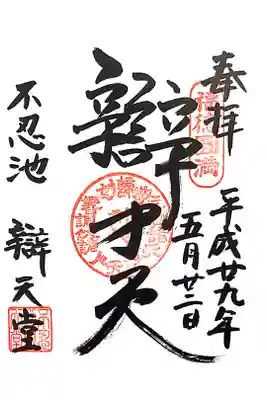 奉拝
平成廿九年
五月廿二日
辯才天
不忍池
辯天堂